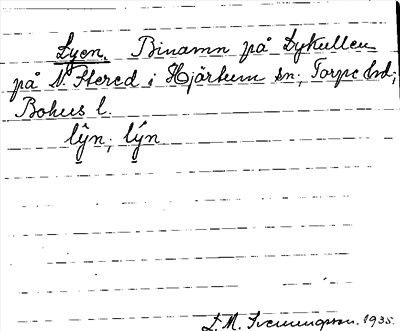 Lyen. Binamn på Dykullen
på N. Stered i Hjärtum sn; Torpe hd;
Bohus l.
lỹn; lýn
D. M. Svenungsson. 1935.